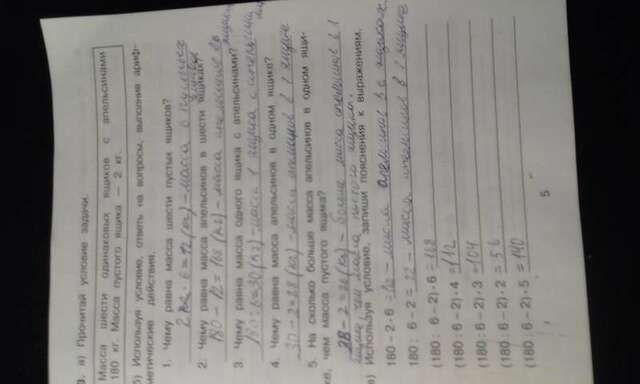 3. а) Прочитай условие задачи.
Масса шести одинаковых ящиков с апельсинами
180 кг. Масса пустого ящика — 2 кг.
б) Используя условие, ответь на вопросы, выполнив ариф-
метические действия.
1. Чему равна масса шести пустых ящиков?
2 кг · 6 = 12 (кг) – масса 6 пустых
ящиков
2. Чему равна масса апельсинов в шести ящиках?
180 – 12 = 168 (кг) – масса апельсинов в 6
ящиках
3. Чему равна масса одного ящика с апельсинами?
180 : 6 = 30 (кг) – масса 1 ящика с апельсинами
4. Чему равна масса апельсинов в одном ящике?
30 – 2 = 28 (кг) – масса апельсинов в 1 ящике
5. На сколько больше масса апельсинов в одном ящи-
ке, чем масса пустого ящика?
28 – 2 = 26 (кг) – больше масса апельсинов в 1
ящике, чем масса пустого ящика.
в) Используя условие, запиши пояснения к выражениям.
180 – 2 · 6 = – масса апельсинов в 6 ящиках
180 : 6 – 2 = – масса апельсинов в 1 ящике
(180 : 6 – 2) · 6 = 168
(180 : 6 – 2) · 4 = 112
(180 : 6 – 2) · 3 = 104
(180 : 6 – 2) · 2 = 56
(180 : 6 – 2) · 5 = 140
5